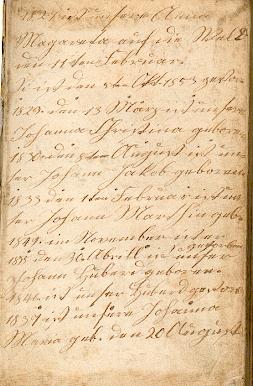 1827 ist unsere Anna
Magareta auf die Welt
den 11ten Februar.
Si ist den 5ten Okt 1853 gestor
1829 den 13 März ist unsere
Johanna Christina geboren
den 5ten August ist un
ser Johann Jakob geboren
1833 den 1ten Februar ist un
ser Johann Martin geb.
1841 im November
1835 den Abrill ist unser gestorben
Johann Huberd geboren.
1841 ist unser Huberd gestorb
1837 ist unsere Johanna
Maria geb. den 20 August